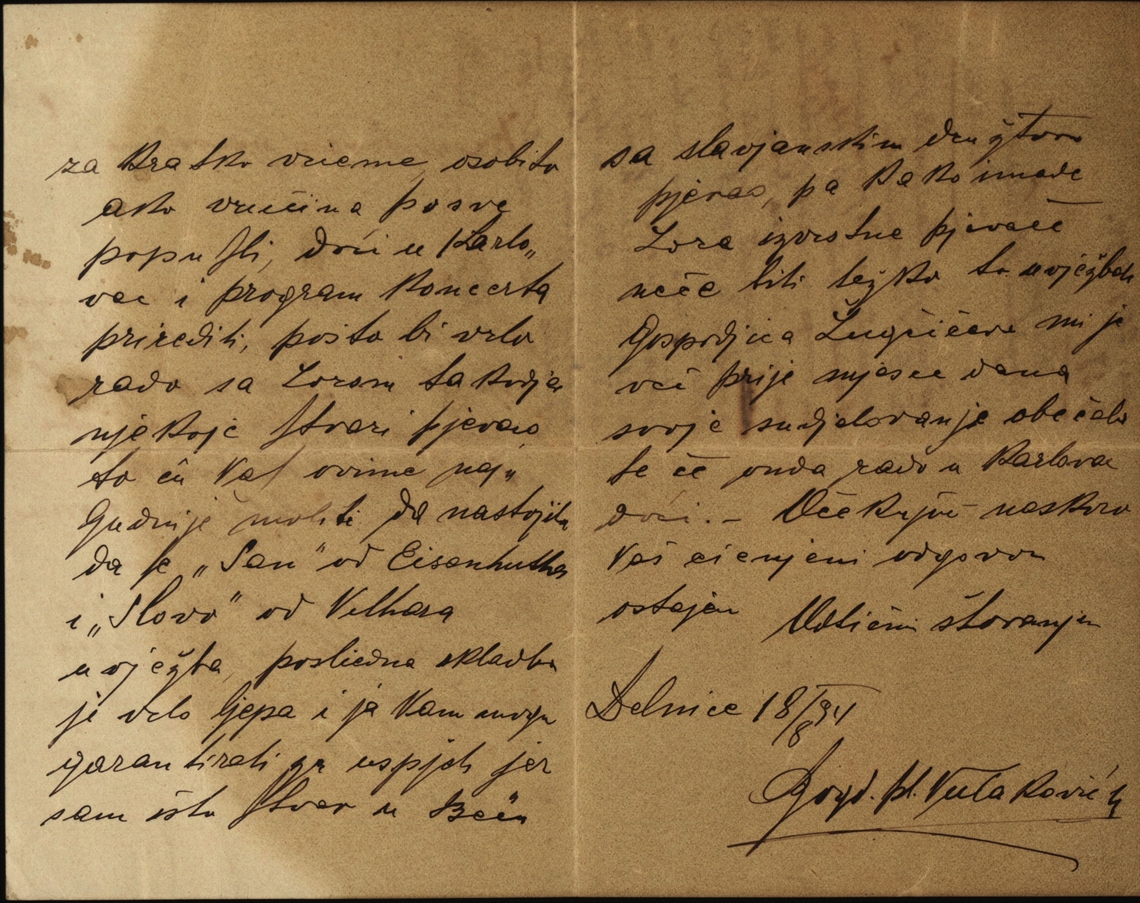 za kratko vrieme, osobito
ako vrućina posve
popusti, doći u Karlo„
vac i program koncerta
prirediti, pošto bi vrlo
rado sa Zorom takodjer
njekoje stvari pjevao,
to ću Vas ovime naj„
gudnije moliti, da nastojite
da se „San" od Eisenhutha
i „Slovo" od Vilhara
uvježba, posliedna skladba
je vrlo ljepa i ja Vam mogu
garantirati za uspjeh jer
sam istu stvar u Beču
sa slavjanskim družtvom
pjevao, pa kako imade
Zora izvrstne pjevače
neće biti težko to uvježbati
Gospodjica mi je
već prije mjesec dana
svoje sudjelovanje obećala
te će onda rado u Karlovac
doći. – Očekujuć naskoro
Vaš cienjeni odgovor
ostajem Odličnim štovanjem
Delnice 18/8 94
Bogd. pl. Vućaković